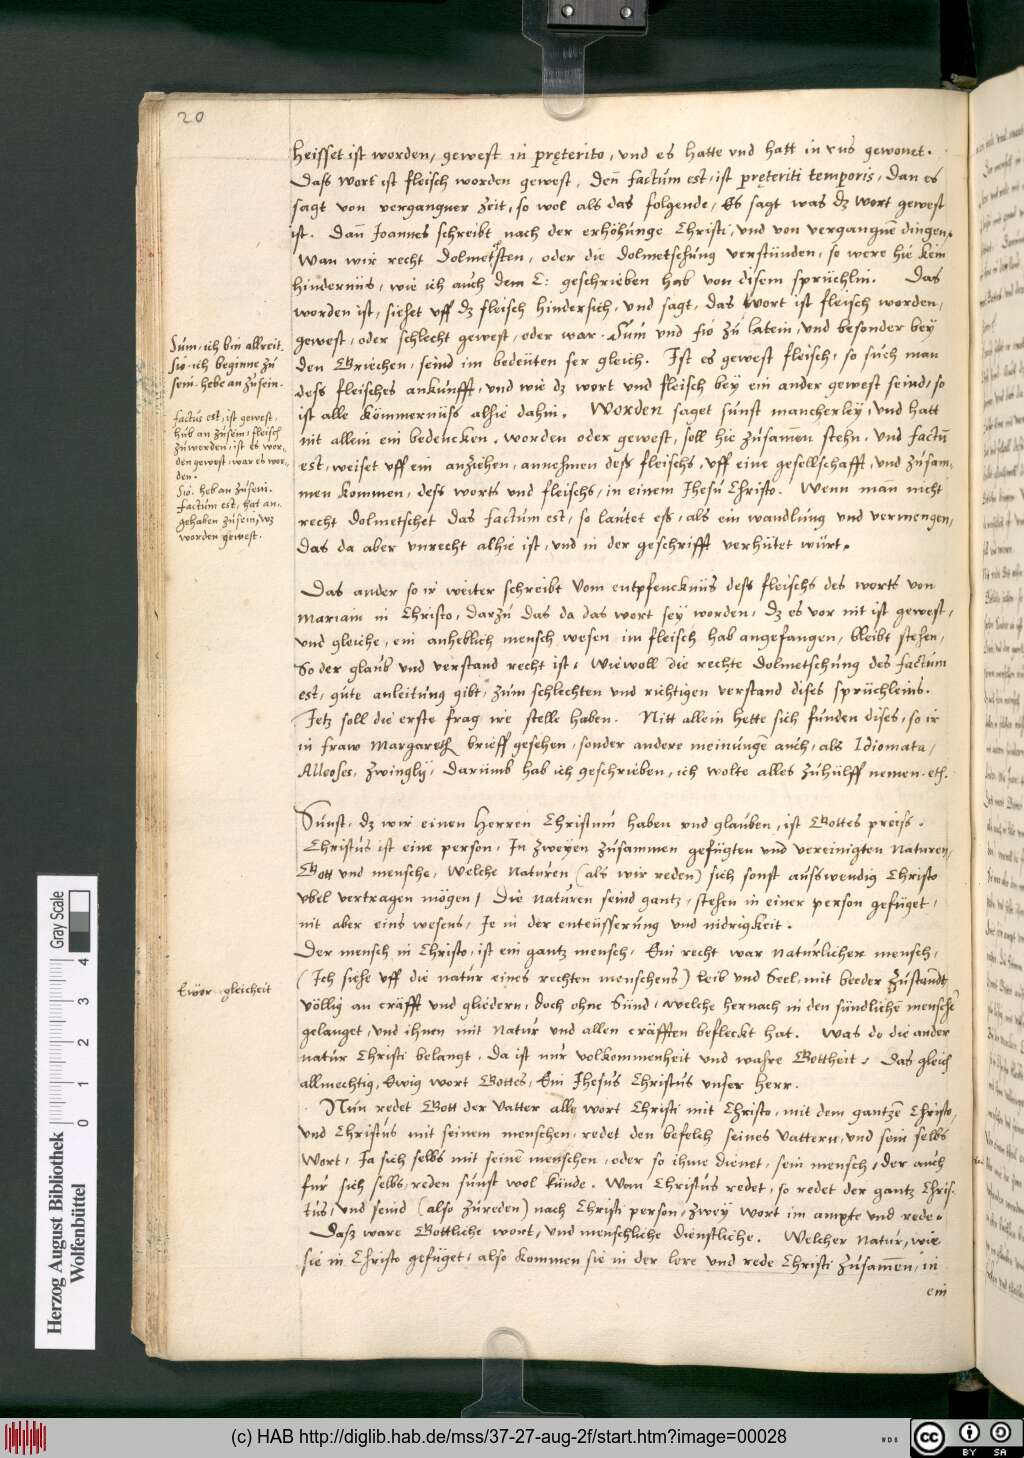 20
heisset ist worden, gewest in pręterito, und es hatte und hatt in uns gewonet.
Dass wort ist fleisch worden gewest, den̄ factum est, ist pręteriti temporis, Dan es
sagt von vergangner zeit, so wol als das folgende, Es sagt was dz wort gewest
ist. Dan̄ Joannes schreibt nach der erhöhunge Christi, und von vergangnē dingen.
Wan wir recht dolmetsten, oder die dolmetschung verstünden, so were hie kein
hindernüs, wie ich auch dem C: geschrieben hab von disem sprüchlin. Das
worden ist, siehet uff dz fleisch hindersich, und sagt, das wort ist fleisch worden,
gewest, oder schlecht gewest, oder war. Sum und fio zu latein, und besonder bey
den Griechen, seind im bedeuten ser gleich. Ist es gewest fleisch, so such man
dess fleisches ankunfft, und wie dz wort und fleisch bey ein ander gewest seind, so
ist alle kömmernüss alhie dahin. Worden saget sunst mancherley, und hatt
nit allein ein bedencken. worden oder gewest, soll hie zusamen stehn, und factū
est, weiset uff ein anziehen, annehmen dess fleischs, uff eine gesellschafft, und zusam-
men kommen, dess worts und fleischs, in einem Jhesu Christo. Wenn man nicht
recht dolmetschet das factum est, so lautet ess, als ein wandlung und vermengen,
Das da aber unrecht alhie ist, und in der geschrifft verhütet würt.
Sum, ich bin allreit.
fio, ich beginne zu
sein, hebe an zusein.
factū est, ist gewest,
hub an zusein, fleisch
zuwerden, ist es wor-
den gewest, war es wor-
den.
fio. heb an zusein.
factum est, hat an-
gehaben zusein, wz
worden gewest.
Das ander so ir weiter schreibt vom entpfencknüs dess fleischs des worts von
Mariam in Christo, Darzu das da das wort sey worden, dz es vor nit ist gewest,
und gleiche, ein anheblich mensch wesen im fleisch hab angefangen, bleibt stehen,
So der glaub und verstand recht ist, Wiewoll die rechte dolmetschung des factum
est, gute anleitung gibt, zum schlechten und richtigen verstand dises sprüchleins.
Jetz soll die erste frag ire stelle haben. Nitt allein hette sich funden dises, so ir
in fraw Margareth brieff gesehen, sonder andere meinungē auch, als Idiomata,
Alleoses, Zwinglij, Darumb hab ich geschrieben, ich wolte alles zuhülff nemen. etc.
Sunst, dz wir einen Herren Christum haben und glauben, ist Gottes preiss.
Christus ist eine person, In zweyen zusammen gefügten und vereinigten Naturen,
Gott und mensche, Welche Naturen (als wir reden) sich sonst ausswendig Christo
übel vertragen mögen, Die Naturen seind gantz, stehen in einer person gefüget,
nit aber eins wesens, Je in der enteusserung und nidrigkeit.
Der mensch in Christo, ist ein gantz mensch, Ein recht war naturlicher mensch,
(Ich siehe uff die natur eines rechten menschens) leib und Seel, mit beeder Zustandt
völlig an cräfft und gliedern, doch ohne Sünd, welche hernach in den sündlichē menschē
gelanget, und ihnen mit Natur und allen cräfften befleckt hat. Was do die ander
natur Christi belangt, da ist nur volkommenheit und wahre Gottheit, Das gleich
allmechtig, Ewig wort Gottes, Ein Jhesus Christus unser herr.
gleicheit
Nun redet Gott der Vatter alle wort Christi mit Christo, mit dem gantzē Christo,
und Christus mit seinem menschen, redet den befelch seines Vattern, und sein selbs
Wort, Ja sich selbs mit seinē menschen, oder so ihme dienet, sein mensch, der auch
fur sich selbs reden sunst wol kunde. Wan Christus redet, so redet der gantz Chris-
tus, und seind (also zureden) nach Christi person, zwey wort im ampte und rede.
Dass ware Gottliche wort, und menschliche dienstliche. Welcher Natur, wie
sie in Christo gefüget, also kommen sie in der lere und rede Christi zusamen, in
ein
Herzog August Bibliothek
Wolfenbüttel
0 1 2 3 4
Gray Scale
(c) HAB http://diglib.hab.de/mss/37-27-aug-2f/start.htm?image=00028
WDB
cc BY SA